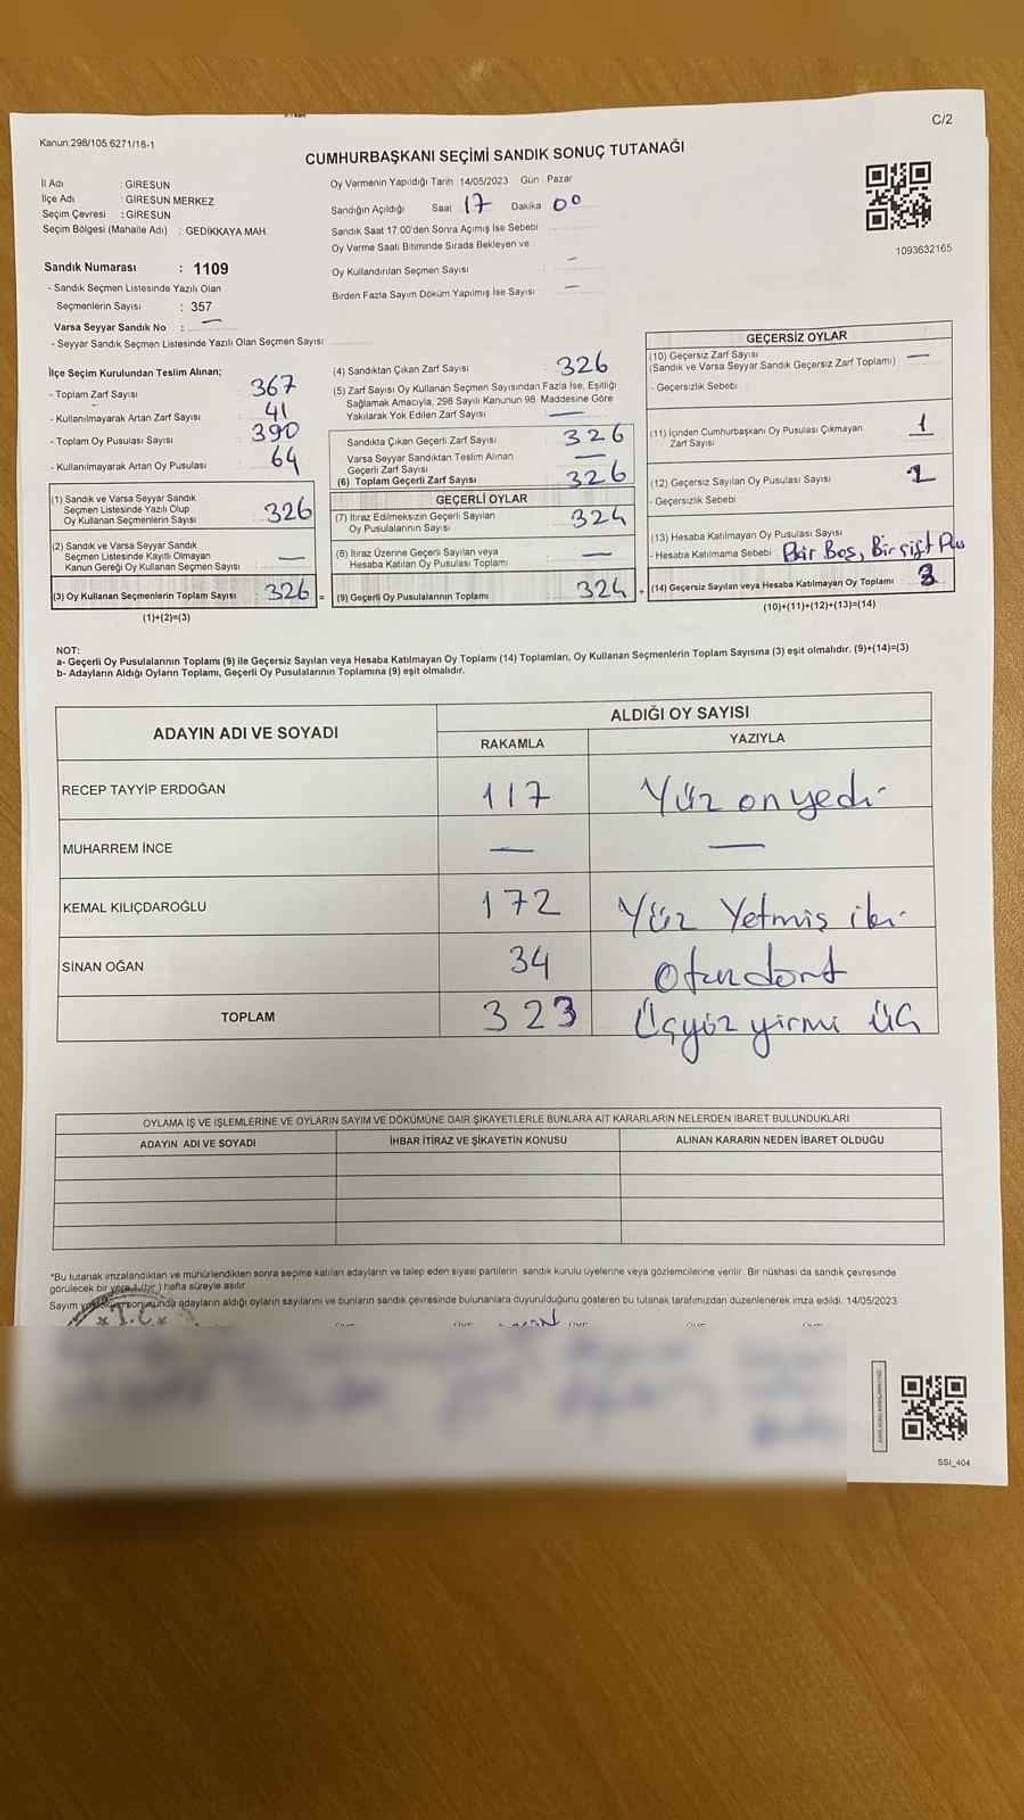 C/2
Kanun.298/105.6271/18-1
CUMHURBAŞKANI SEÇİMİ SANDIK SONUÇ TUTANAĞI
İl Adı : GİRESUN
İlçe Adı : GİRESUN MERKEZ
Seçim Çevresi : GİRESUN
Seçim Bölgesi (Mahalle Adı) : GEDİKKAYA MAH.
Oy Vermenin Yapıldığı Tarih 14/05/2023 Gün : Pazar
Sandığın Açıldığı Saat 17 Dakika 00
Sandık Saat 17:00'den Sonra Açılmış İse Sebebi
Oy Verme Saati Bitiminde Sırada Bekleyen ve
Oy Kullandırılan Seçmen Sayısı —
Birden Fazla Sayım Döküm Yapılmış İse Sayısı —
1093632165
Sandık Numarası : 1109
- Sandık Seçmen Listesinde Yazılı Olan
Seçmenlerin Sayısı : 357
Varsa Seyyar Sandık No : —
- Seyyar Sandık Seçmen Listesinde Yazılı Olan Seçmen Sayısı:
İlçe Seçim Kurulundan Teslim Alınan;
- Toplam Zarf Sayısı 367
- Kullanılmayarak Artan Zarf Sayısı 41
- Toplam Oy Pusulası Sayısı 390
- Kullanılmayarak Artan Oy Pusulası 64
(1) Sandık ve Varsa Seyyar Sandık
Seçmen Listesinde Yazılı Olup
Oy Kullanan Seçmenlerin Sayısı 326
(2) Sandık ve Varsa Seyyar Sandık
Seçmen Listesinde Kayıtlı Olmayan
Kanun Gereği Oy Kullanan Seçmen Sayısı —
(3) Oy Kullanan Seçmenlerin Toplam Sayısı 326 =
(1)+(2)=(3)
(4) Sandıktan Çıkan Zarf Sayısı 326
(5) Zarf Sayısı Oy Kullanan Seçmen Sayısından Fazla İse, Eşitliği
Sağlamak Amacıyla, 298 Sayılı Kanunun 98. Maddesine Göre
Yakılarak Yok Edilen Zarf Sayısı —
Sandıkta Çıkan Geçerli Zarf Sayısı 326
Varsa Seyyar Sandıktan Teslim Alınan
Geçerli Zarf Sayısı —
(6) Toplam Geçerli Zarf Sayısı 326
GEÇERLİ OYLAR
(7) İtiraz Edilmeksizin Geçerli Sayılan
Oy Pusulalarının Sayısı 324
(8) İtiraz Üzerine Geçerli Sayılan veya
Hesaba Katılan Oy Pusulası Toplamı —
(9) Geçerli Oy Pusulalarının Toplamı 324 +
GEÇERSİZ OYLAR
(10) Geçersiz Zarf Sayısı
(Sandık ve Varsa Seyyar Sandık Geçersiz Zarf Toplamı) —
- Geçersizlik Sebebi
(11) İçinden Cumhurbaşkanı Oy Pusulası Çıkmayan
Zarf Sayısı 1
(12) Geçersiz Sayılan Oy Pusulası Sayısı
- Geçersizlik Sebebi
(13) Hesaba Katılmayan Oy Pusulası Sayısı
- Hesaba Katılmama Sebebi Bir Boş, Bir Çift
(14) Geçersiz Sayılan veya Hesaba Katılmayan Oy Toplamı 3
(10)+(11)+(12)+(13)=(14)
NOT:
a- Geçerli Oy Pusulalarının Toplamı (9) ile Geçersiz Sayılan veya Hesaba Katılmayan Oy Toplamı (14) Toplamları, Oy Kullanan Seçmenlerin Toplam Sayısına (3) eşit olmalıdır. (9)+(14)=(3)
b- Adayların Aldığı Oyların Toplamı, Geçerli Oy Pusulalarının Toplamına (9) eşit olmalıdır.
ADAYIN ADI VE SOYADI ALDIĞI OY SAYISI
RAKAMLA YAZIYLA
RECEP TAYYİP ERDOĞAN 117 Yüz onyedi
MUHARREM İNCE — —
KEMAL KILIÇDAROĞLU 172 Yüz Yetmiş iki
SİNAN OĞAN 34 Otuzdört
TOPLAM 323 Üçyüz yirmi üç
OYLAMA İŞ VE İŞLEMLERİNE VE OYLARIN SAYIM VE DÖKÜMÜNE DAİR ŞİKAYETLERLE BUNLARA AİT KARARLARIN NELERDEN İBARET BULUNDUKLARI
ADAYIN ADI VE SOYADI İHBAR İTİRAZ VE ŞİKAYETİN KONUSU ALINAN KARARIN NEDEN İBARET OLDUĞU
*Bu tutanak imzalandıktan ve mühürlendikten sonra seçime katılan adayların ve talep eden siyasi partilerin sandık kurulu üyelerine veya gözlemcilerine verilir. Bir nüshası da sandık çevresinde
görülecek bir yere 1 (bir) hafta süreyle asılır.
Sayım sonunda adayların aldığı oyların sayılarını ve bunların sandık çevresinde bulunanlara duyurulduğunu gösteren bu tutanak tarafımızdan düzenlenerek imza edildi. 14/05/2023
T.C.
SSI_404